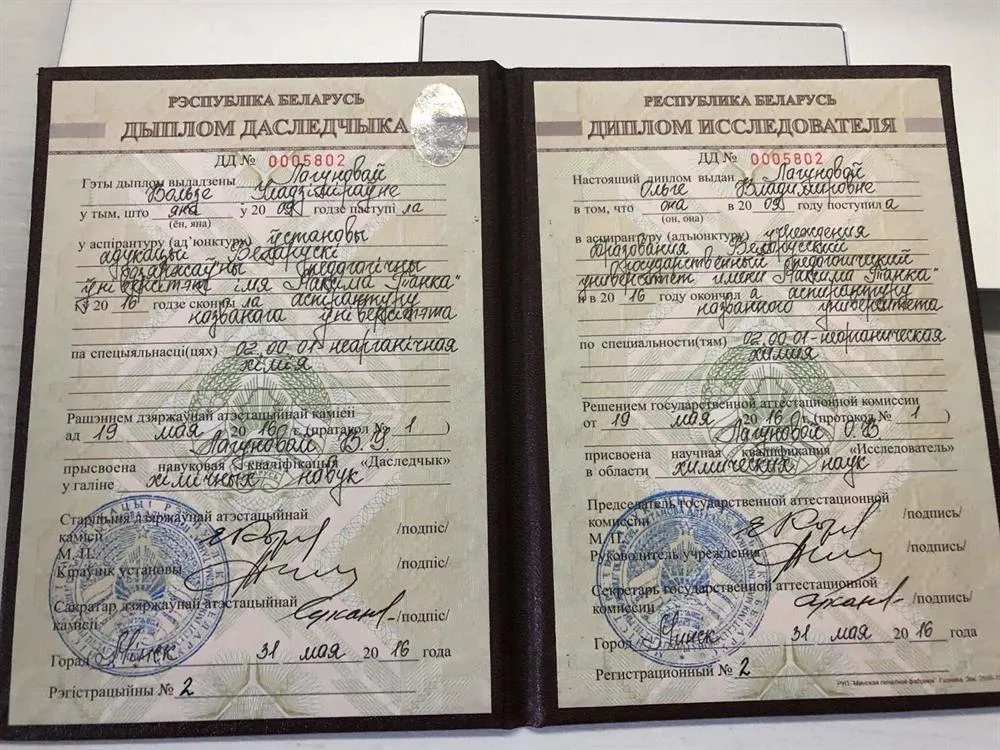 РЭСПУБЛІКА БЕЛАРУСЬ
ДЫПЛОМ ДАСЛЕДЧЫКА
ДД № 0005802
Гэты дыплом выдадзены Лагуновай
Вользе Уладзіміраўне
у тым, што яна у 20 09 годзе паступі ла
(ён, яна)
у аспірантуру (ад'юнктуру) ўстановы
адукацыі "Беларускі
дзяржаўны педагагічны
ўніверсітэт імя Максіма Танка"
і ў 20 16 годзе скончы ла аспірантуру
названага ўніверсітэта
па спецыяльнасці(цях) 02.00.01-неарганічная
хімія
Рашэннем дзяржаўнай атэстацыйнай камісіі
ад 19 мая 20 16 г. (пратакол № 1 )
Лагуновай В.У.
прысвоена навуковая кваліфікацыя «Даследчык»
у галіне хімічных навук
Старшыня дзяржаўнай атэстацыйнай
камісіі /подпіс/
М. П.
Кіраўнік установы /подпіс/
Сакратар дзяржаўнай атэстацыйнай
камісіі /подпіс/
Горад Мінск 31 мая 20 16 года
Рэгістрацыйны № 2
РЕСПУБЛИКА БЕЛАРУСЬ
ДИПЛОМ ИССЛЕДОВАТЕЛЯ
ДД № 0005802
Настоящий диплом выдан Лагуновой
Ольге Владимировне
в том, что она в 20 09 году поступил а
(он, она)
в аспирантуру (адъюнктуру) учреждения
образования "Белорусский
государственный педагогический
университет имени Максима Танка"
и в 20 16 году окончил а аспирантуру
названного университета
по специальности(тям) 02.00.01-неорганическая
химия
Решением государственной аттестационной комиссии
от 19 мая 20 16 г. (протокол № 1 )
Лагуновой О.В.
присвоена научная квалификация «Исследователь»
в области химических наук
Председатель государственной аттестационной
комиссии /подпись/
М. П.
Руководитель учреждения /подпись/
Секретарь государственной аттестационной
комиссии /подпись/
Город Минск 31 мая 20 16 года
Регистрационный № 2
РУП "Минская печатная фабрика" Гознака.